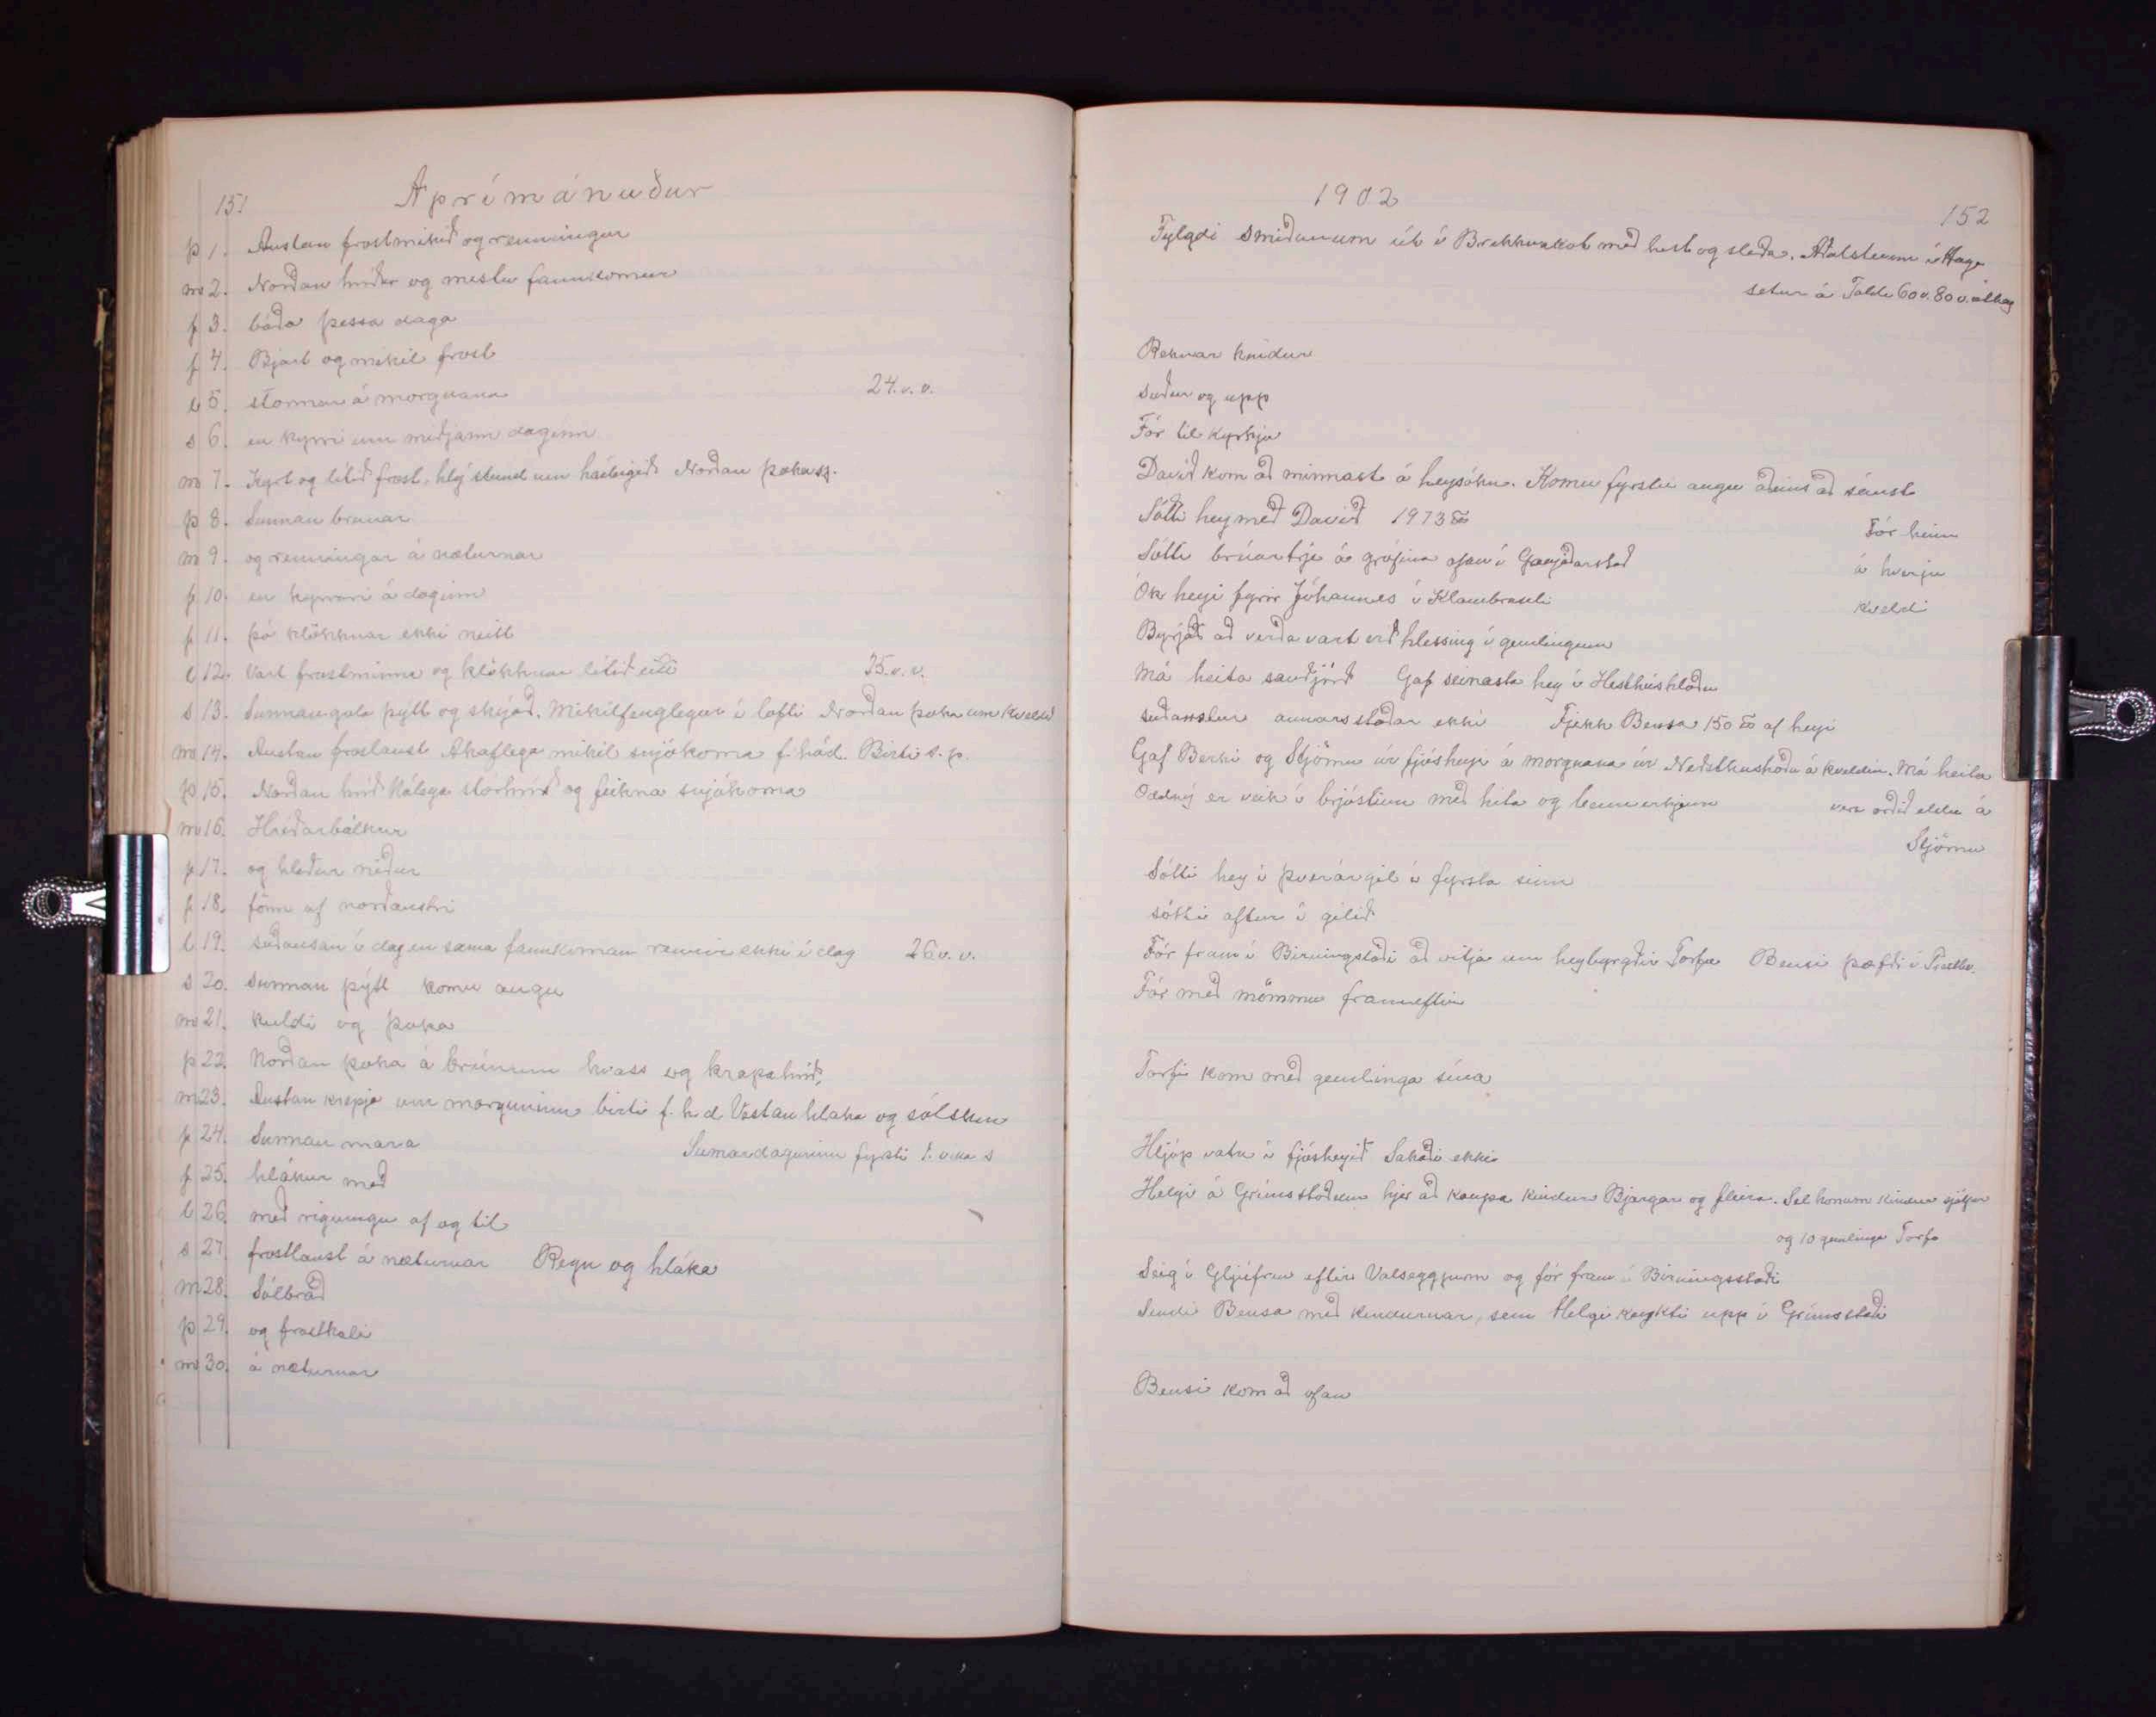 151
Aprímánuður
þ 1. Austan frostmikið og renningur
m 2. Norðan hríðar og mestu fannkomur
f 3. báða þessa daga
f 4. Bjart og mikil frost
l 5. stormar á morgnana 24. v. v.
s 6. en kyrri um miðjann daginn
m 7. Kyrt og lítið frost, hlý stund um hádegið Norðan þoka sz.
þ 8. Sunnan brunar
m 9. og renningar á næturnar
f 10. en kyrrari á daginn
f 11. þó klökknar ekki neitt
l 12. Vart frostminna og klökknar lítið eitt 25. v. v.
s 13. Sunnan gola þýtt og skýjað. Mikilfenglegur í lofti Norðan þoka um kveldið
m 14. Austan frostlaust Ákaflega mikil snjókoma f. hád. Birti s. p.
þ 15. Norðan hríð Nálega stórhríð og feikna snjókoma
m 16. Hríðarbálkur
f 17. og hleður niður
f 18. fönn af norðaustri
l 19. suðaustan í dag en sama fannkoman rennir ekki í dag 26. v. v.
s 20. Sunnan þýtt komu augu
m 21. Kuldi og þoka
þ 22. Norðan þoka á brúnum hvass og krapahríð,
m 23. Austan krepja um morguninn birti f. h. d Vestan hlaka og sólskin
f 24. Sunnan mara Sumardagurinn fyrsti 1. vika s
f 25. hlákur með
l 26. með rigningu af og til
s 27. frostlaust á næturnar Regn og hláka
m 28. Sólbráð
þ 29. og frostkali
m 30. á næturnar
1902
152
Fylgdi smiðunum út í Brekknakot með hest og sleða. Aðalsteinn í Haga
setur á Taldi 60 v. 80 v.
Reknar kindur
suður og upp
Fór til kyrkju
Davíð kom að minnast á heysókn. Komu fyrstu augu aðeins að sánst
Sótti hey með Davíð 1973 ℔ Fór heim
Sótti brúartrje á grófina ofan í Grenjaðarstað á hverju
Ók heyi fyrir Jóhannes í Klambraseli kveldi
Byrjað að verða vart við klessing í gemlingum
Má heita sauðjörð Gaf seinasta hey í Hesthúshlöðu
suðaustur annarsstaðar ekki Fjekk Bensa 150 ℔ af heyi
Gaf Berki og Stjörnu úr fjósheyi á morgnana úr Neðsthúshlöðu á kveldin. Má heita
Oddný er veik í brjóstinu með hita og vera orðið eldu á
Stjörnu
Sótti hey í Þverárgil í fyrsta sinn
sótti aftur í gilið
Fór fram í Birningstaði að vitja um heybyrgðir Torfa Bensi þæfði í
Fór með mömmu frammeftir
Torfi kom með gemlinga sína
Hljóp vatn í fjósheyið Sakaði ekki
Helgi á Grímsstöðum hjer að kaupa kindur Bjargar og fleira. Sel honum kindur sjálfur
og 10 gemlinga Torfa
Seig í Gljúfrin eftir Valseggjum og fór fram í Birningsstaði
Sendi Bensa með kindurnar, sem Helgi keypti upp í Grímsstaði
Bensi kom að ofan